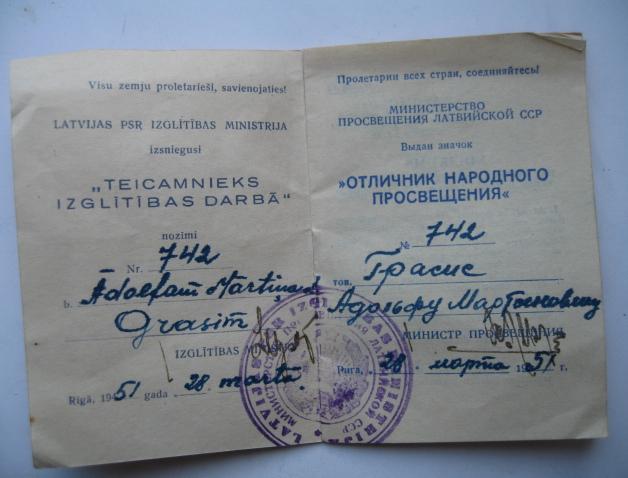 Visu zemju proletarieši, savienojaties!
LATVIJAS PSR IZGLĪTĪBAS MINISTRIJA
izsniegusi
„TEICAMNIEKS
IZGLĪTĪBAS DARBĀ"
nozīmi
Nr. 742
b. Ādolfam Mārtiņa d.
Grasim
IZGLĪTĪBAS
Rīgā, 1951 gada 28. martā.
Пролетарии всех стран, соединяйтесь!
МИНИСТЕРСТВО
ПРОСВЕЩЕНИЯ ЛАТВИЙСКОЙ ССР
Выдан значок
»ОТЛИЧНИК НАРОДНОГО
ПРОСВЕЩЕНИЯ«
№ 742
тов. Грасис
Адольфу Мартыновичу
МИНИСТР ПРОСВЕЩЕНИЯ
Рига, 28 марта 1951 г.